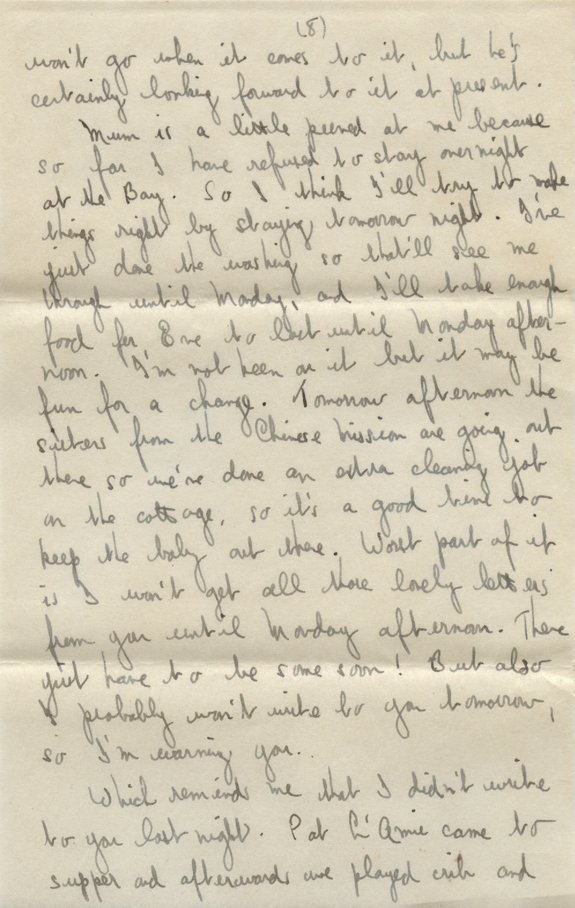 (8)
won't go when it comes to it, but he's
certainly looking forward to it at present.
Mum is a little peeved at me because
so far I have refused to stay overnight
at the Bay. So I think I'll try to make
things right by staying tomorrow night. I've
just done the washing so that'll see me
through until Monday, and I'll take enough
food for Eve to last until Monday after-
noon. I'm not keen on it but it may be
fun for a change. Tomorrow afternoon the
sisters from the Chinese Mission are going out
there so we've done an extra cleaning job
on the cottage, so it's a good time to
keep the baby out there. Worst part of it
is I won't get all those lovely letters
from you until Monday afternoon. There
just have to be some soon! But also
I probably won't write to you tomorrow,
so I'm warning you..
Which reminds me that I didn't write
to you last night. Pat L'Amie came to
supper and afterwards we played crib and